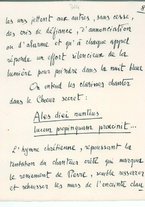 8
les uns jettent aux autres, sans cesse,
des cris de défiance, d'annonciation
ou d'alarme et qu'à chaque appel
réponde un effort silencieux de la
lumière pour poindre dans la nuit bleue
On entend les clarines chanter
dans le Chœur secret :
Ales diei nuntius
lucem propinquam praecinit...
L'hymne chrétienne, repoussant la
tentation du chanteur ailé qui marqua
le reniement de Pierre, semble resserrer
et rehausser les murs de l'enceinte claus